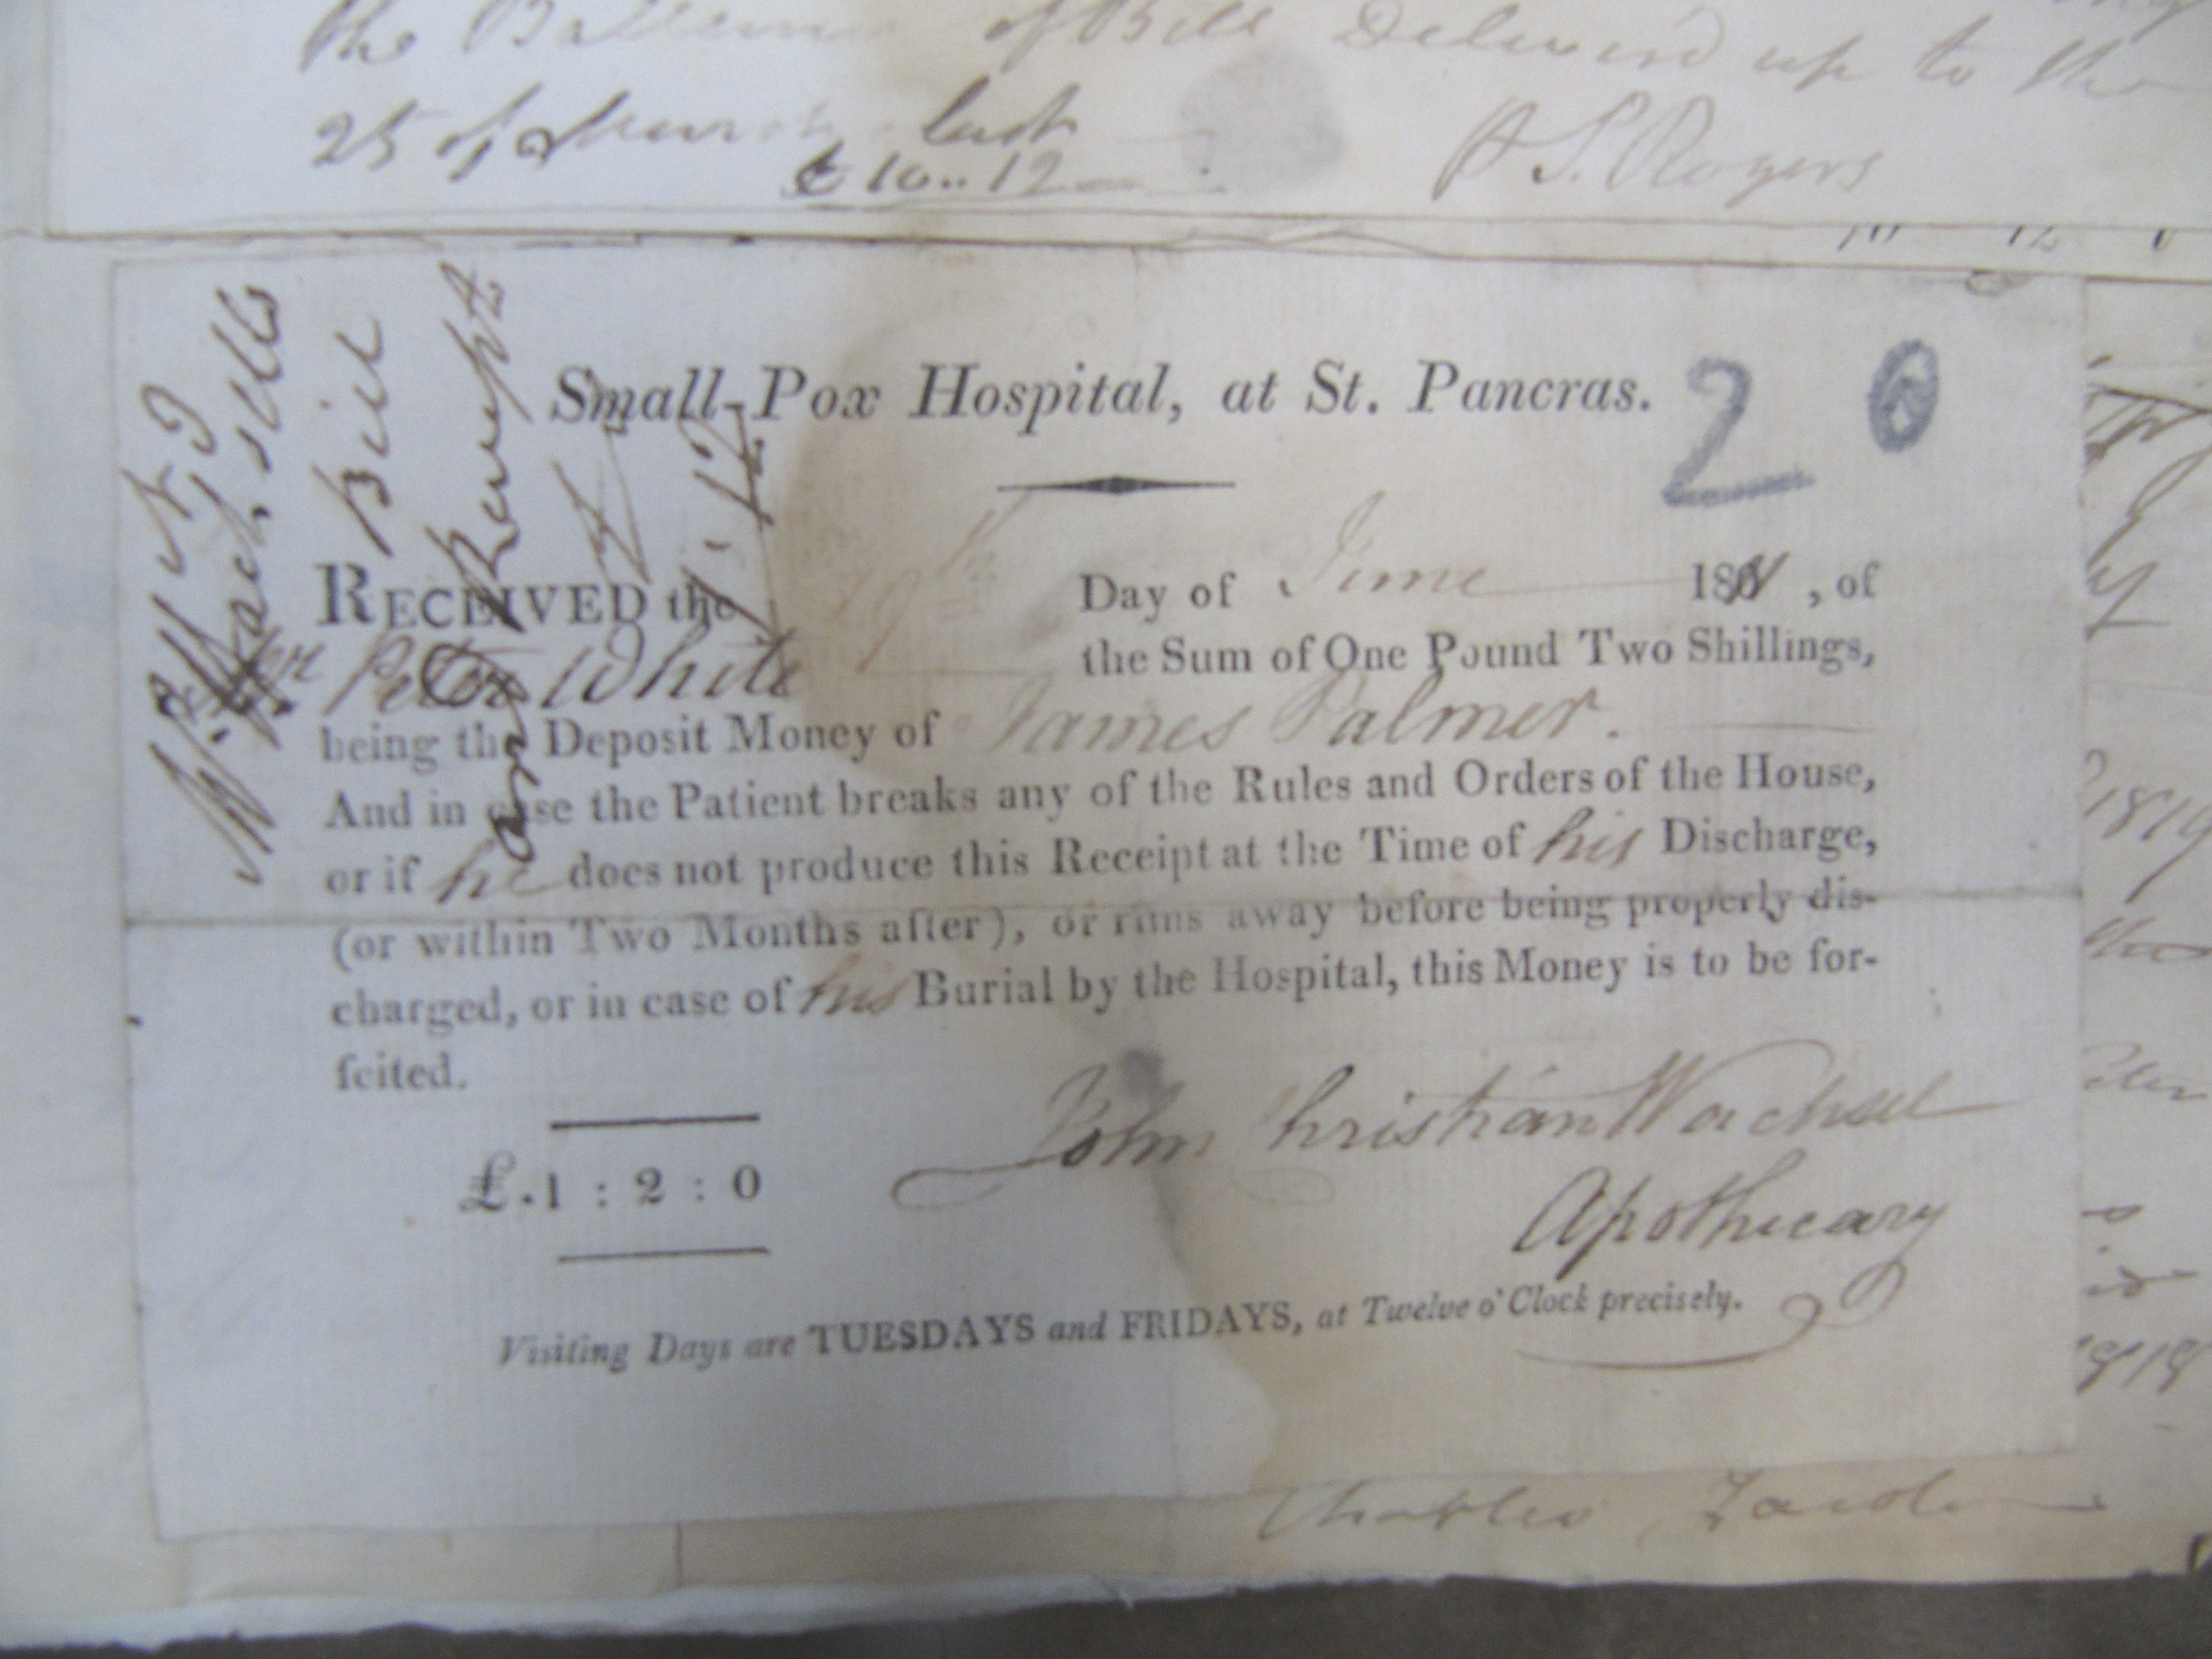 the of Bill Deliverd up to the
25 of March last
£10..12
S. Rogers
Small-Pox Hospital, at St. Pancras.
20
RECEIVED the 19th Day of June 1811, of
Mr Peter White the Sum of One Pound Two Shillings,
being the Deposit Money of James Palmer.
And in case the Patient breaks any of the Rules and Orders of the House,
or if he does not produce this Receipt at the Time of his Discharge,
(or within Two Months after), or runs away before being properly dis-
charged, or in case of his Burial by the Hospital, this Money is to be for-
feited.
£.1 : 2 : 0
John Christian Wachsel
Apothecary
Visiting Days are TUESDAYS and FRIDAYS, at Twelve o'Clock precisely.
Wachsells
Bill
and Receipt
Charles
1819
1818